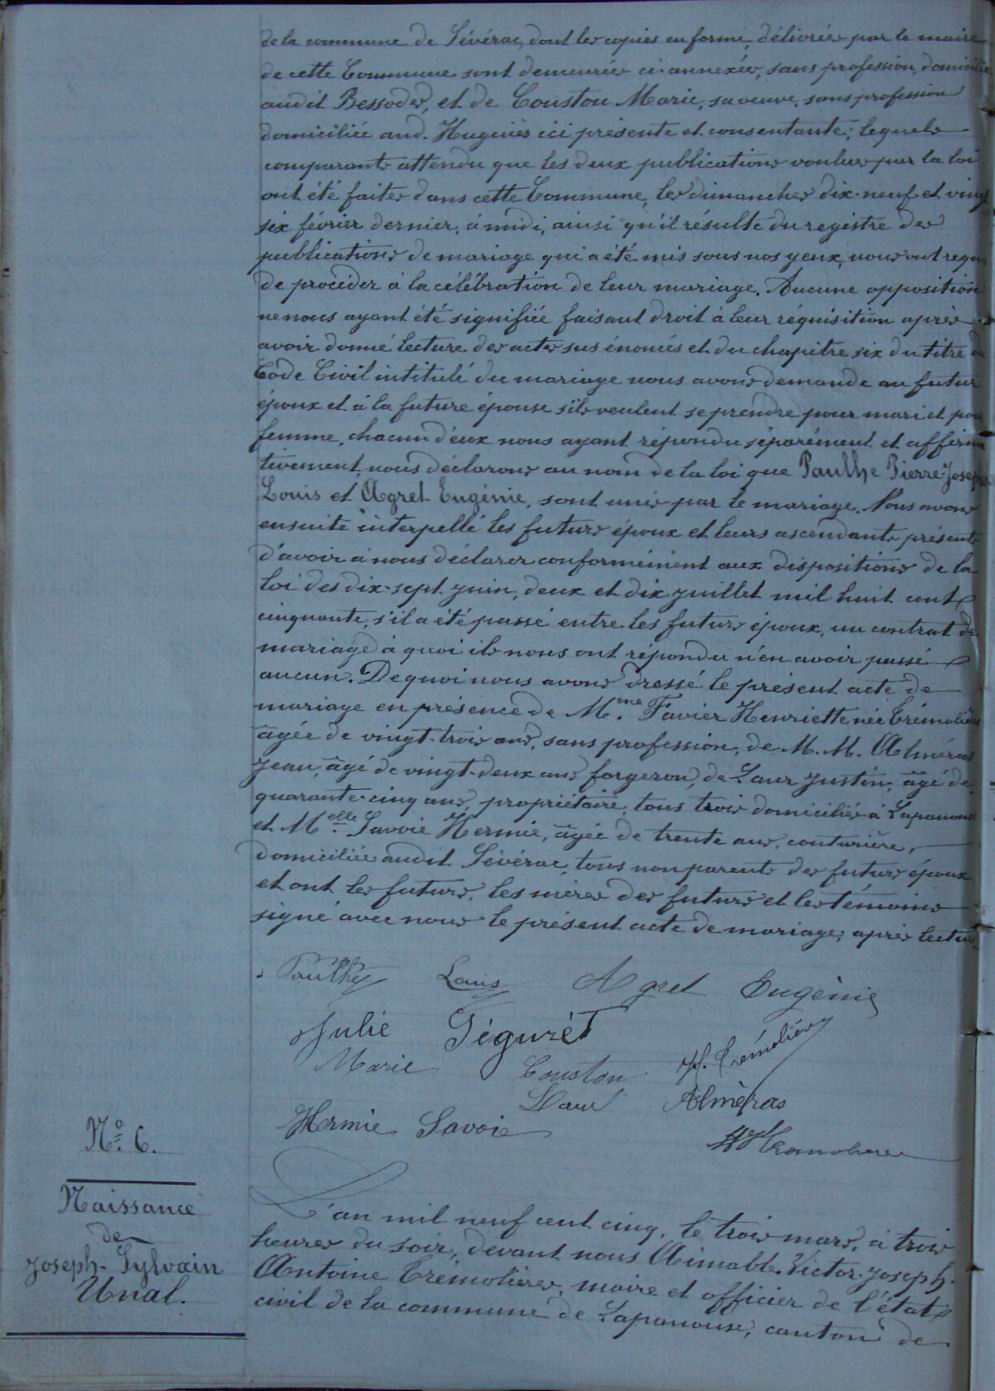 de la commune de Sévérac, dont les copies en forme, délivrées par le maire
de cette Commune sont demeurées ci-annexées, sans profession, domiciliée
audit Bessodes, et de Couston Marie, sa veuve, sans profession
domiciliée aud. Hugeniès ici présente et consentante; lequels
comparants attendu que les deux publications voulues par la loi
ont été faites dans cette Commune, les dimanches dix-neuf et vingt
six février dernier, à midi, ainsi qu'il résulte du registre des
publications de mariage qui a été mis sous nos yeux, nous ont requis
de procéder à la célébration de leur mariage. Aucune opposition
ne nous ayant été signifiée faisant droit à leur réquisition après
avoir donné lecture des actes sus énoncés et du chapitre six du titre du
Code Civil intitulé du mariage nous avons demande au futur
époux et à la future épouse s'ils veulent se prendre pour mari et pour
femme, chacun d'eux nous ayant répondu séparément et affirma
tivement, nous déclarons au nom de la loi que Paulhe Pierre-Joseph
Louis et Agret Eugénie, sont unis par le mariage. Nous avons
ensuite interpellé les futurs époux et leurs ascendants présents
d'avoir à nous déclarer conformément aux dispositions de la
loi des dix-sept juin, deux et dix juillet mil huit cent
cinquante, s'il a été passé entre les futurs époux, un contrat de
mariage à quoi ils nous ont répondu n'en avoir passé
aucun. De quoi nous avons dressé le présent acte de
mariage en présence de Mme Favier Henriette née Trémolières
âgée de vingt-trois ans, sans profession, de M. M. Alméras
Jean, âgé de vingt-deux ans forgeron, de Laur Justin, âgé de
quarante-cinq ans, propriétaire, tous trois domiciliés à Lapanouse
et Melle Savoie Hermie, âgée de trente ans, couturière,
domiciliée audit Sévérac, tous non parents des futurs époux
et ont les futurs, les mères des futurs et les témoins
signé avec nous le présent acte de mariage, après lecture.
Paulhe Louis Agret Eugènie
Julie Séguret
H. Trémolières
Marie Couston
Laur Alméras
Hermie Savoie
N° 6.
Naissance
de
Joseph-Sylvain
Unal.
L'an mil neuf cent cinq, le trois mars, à trois
heures du soir, devant nous Aimable-Victor-Joseph-
Antoine Trémolières, maire et officier de l'état
civil de la commune de Lapanouse, canton de